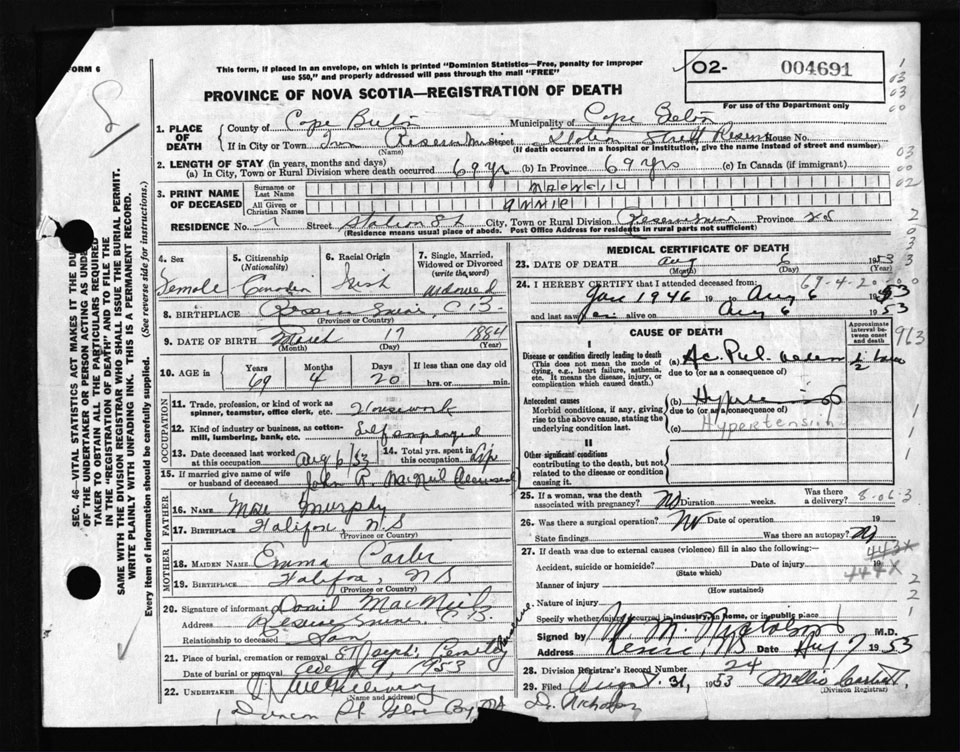 FORM 6
This form, if placed in an envelope, on which is printed "Dominion Statistics—Free, penalty for improper
use $50," and properly addressed will pass through the mail "FREE"
O2- 004691
For use of the Department only
PROVINCE OF NOVA SCOTIA—REGISTRATION OF DEATH
1. PLACE OF DEATH
County of Cape Breton Municipality of Cape Breton
If in City or Town Reserve Street Station Street Reserve House No.
(Name) (If death occurred in a hospital or institution, give the name instead of street and number)
2. LENGTH OF STAY (in years, months and days)
(a) In City, Town or Rural Division where death occurred 69 yrs (b) In Province 69 yrs (c) In Canada (if immigrant)
3. PRINT NAME OF DECEASED
Surname or Last Name MACNEIL
All Given or Christian Names ANNIE
RESIDENCE No. Street Station St City, Town or Rural Division Reserve Mines Province NS
(Residence means usual place of abode. Post Office Address for residents in rural parts not sufficient)
4. Sex Female
5. Citizenship (Nationality) Canadian
6. Racial Origin Irish
7. Single, Married, Widowed or Divorced (write the word) Widowed
8. BIRTHPLACE Reserve Mines, C B.
(Province or Country)
9. DATE OF BIRTH March 17 1884
(Month) (Day) (Year)
10. AGE in Years 69 Months 4 Days 20 If less than one day old hrs. or min.
OCCUPATION
11. Trade, profession, or kind of work as spinner, teamster, office clerk, etc. Housework
12. Kind of industry or business, as cotton-mill, lumbering, bank, etc. Self employed
13. Date deceased last worked at this occupation Aug 6/53 14. Total yrs. spent in this occupation Life
15. If married give name of wife or husband of deceased John R. MacNeil Deceased
FATHER
16. Name Murphy
17. Birthplace Halifax, N.S
(Province or Country)
MOTHER
18. MAIDEN NAME Emma Carter
19. BIRTHPLACE Halifax, NS
(Province or Country)
20. Signature of informant Daniel MacNeil
Address Reserve Mines C.B.
Relationship to deceased Son
21. Place of burial, cremation or removal St Joseph's Cemetery Reserve
Date of burial or removal 9, 1953
22. UNDERTAKER
(Name and address)
Duncan St. Glace Bay NS
MEDICAL CERTIFICATE OF DEATH
23. DATE OF DEATH Aug 6 1953
(Month) (Day) (Year)
24. I HEREBY CERTIFY that I attended deceased from: 69-4-20
Jan 1946 19 to Aug 6 1953
and last saw alive on Aug 6 1953
CAUSE OF DEATH
Approximate interval between onset and death
I
Disease or condition directly leading to death (a) Ac. Pul. edema
(This does not mean the mode of dying, e.g., heart failure, asthenia, etc. It means the disease, injury, or complication which caused death.)
due to (or as a consequence of)
Antecedent causes (b) Hypertension
Morbid conditions, if any, giving rise to the above cause, stating the underlying condition last.
due to (or as a consequence of)
(c) Hypertension
II
Other significant conditions
contributing to the death, but not related to the disease or condition causing it.
963
25. If a woman, was the death associated with pregnancy? No Duration weeks. Was there a delivery? 8-06-3
26. Was there a surgical operation? No Date of operation 19
State findings Was there an autopsy? No
27. If death was due to external causes (violence) fill in also the following:—
Accident, suicide or homicide? Date of injury 19
(State which)
443X
444X
Manner of injury
(How sustained)
Nature of injury
Specify whether injury occurred in industry, in home, or in public place
Signed by M. Nicholson M.D.
Address Reserve, NS Date Aug 7 1953
28. Division Registrar's Record Number 24
29. Filed August 31, 1953
(Division Registrar)
Dr. Nicholson
SEC. 46—VITAL STATISTICS ACT MAKES IT THE DUTY
OF THE UNDERTAKER OR PERSON ACTING AS UNDER-
TAKER TO OBTAIN ALL THE PARTICULARS REQUIRED
IN THE "REGISTRATION OF DEATH" AND TO FILE THE
SAME WITH THE DIVISION REGISTRAR WHO SHALL ISSUE THE BURIAL PERMIT.
WRITE PLAINLY WITH UNFADING INK. THIS IS A PERMANENT RECORD.
Every item of information should be carefully supplied. (See reverse side for instructions.)